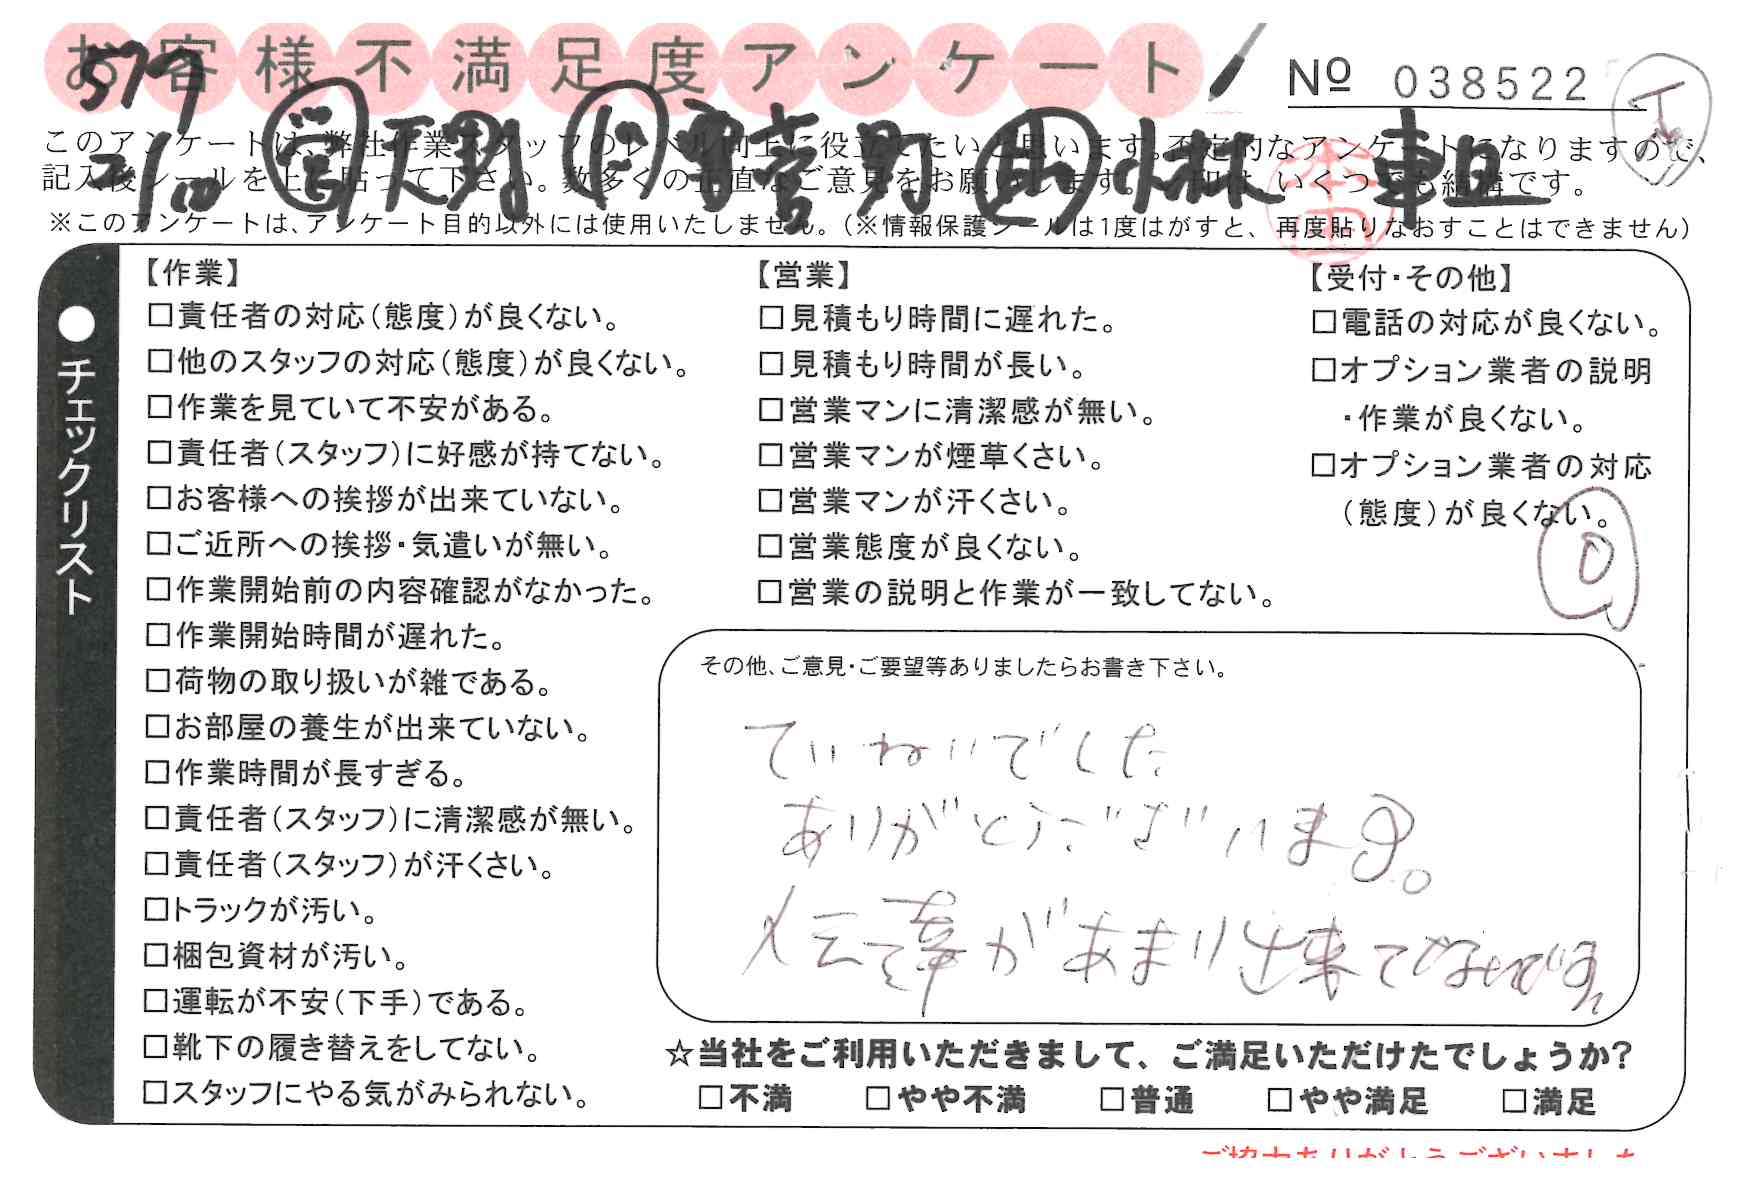 お客様不満足度アンケート
No 038522
このアンケートは、弊社作業スタッフのレベル向上に役立てたいと思います。不定期的なアンケートになりますので、
記入後シールを上に貼って下さい。数多くの正直なご意見をお願いします。
いくつでも結構です。
※このアンケートは、アンケート目的以外には使用いたしません。(※情報保護シールは1度はがすと、再度貼りなおすことはできません)
本田
●チェックリスト
【作業】
□責任者の対応(態度)が良くない。
□他のスタッフの対応(態度)が良くない。
□作業を見ていて不安がある。
□責任者(スタッフ)に好感が持てない。
□お客様への挨拶が出来ていない。
□ご近所への挨拶・気遣いが無い。
□作業開始前の内容確認がなかった。
□作業開始時間が遅れた。
□荷物の取り扱いが雑である。
□お部屋の養生が出来ていない。
□作業時間が長すぎる。
□責任者(スタッフ)に清潔感が無い。
□責任者(スタッフ)が汗くさい。
□トラックが汚い。
□梱包資材が汚い。
□運転が不安(下手)である。
□靴下の履き替えをしてない。
□スタッフにやる気がみられない。
【営業】
□見積もり時間に遅れた。
□見積もり時間が長い。
□営業マンに清潔感が無い。
□営業マンが煙草くさい。
□営業マンが汗くさい。
□営業態度が良くない。
□営業の説明と作業が一致してない。
【受付・その他】
□電話の対応が良くない。
□オプション業者の説明
・作業が良くない。
□オプション業者の対応
(態度)が良くない。
その他、ご意見・ご要望等ありましたらお書き下さい。
ていねいでした
ありがとうございます。
伝達があまり出来て
☆当社をご利用いただきまして、ご満足いただけたでしょうか?
□不満 □やや不満 □普通 □やや満足 □満足
ご協力ありがとうございました